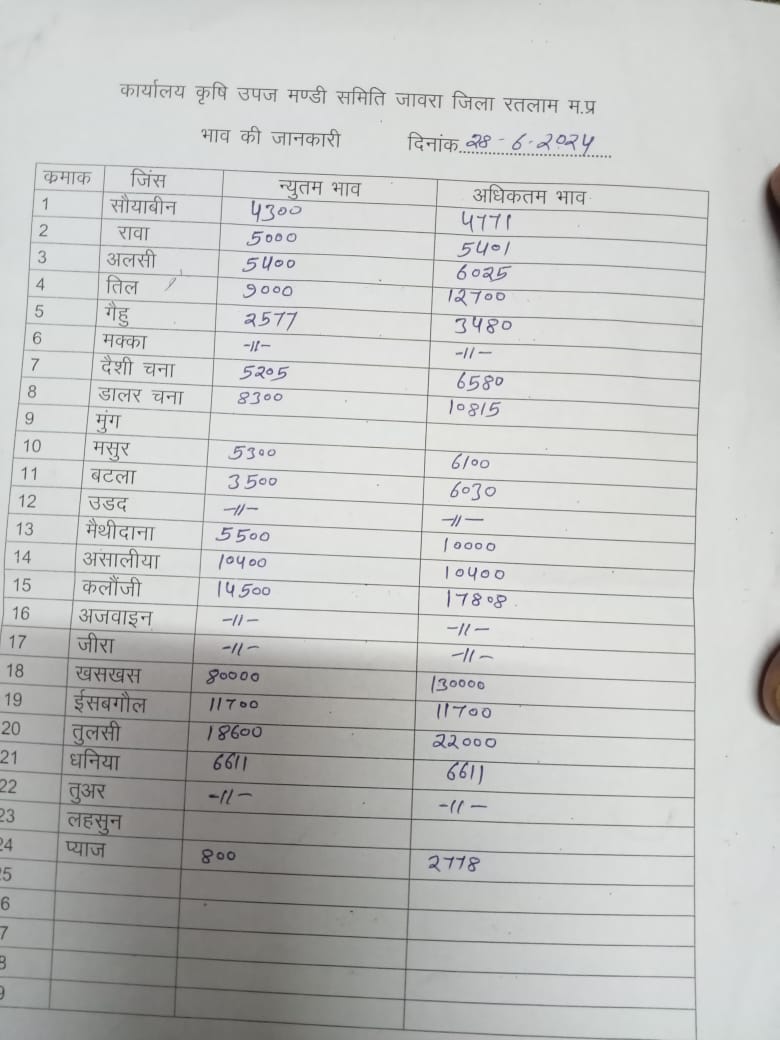 कार्यालय कृषि उपज मण्डी समिति जावरा जिला रतलाम म.प्र
भाव की जानकारी दिनांक..28-6-2024
कमाक जिंस न्युतम भाव अधिकतम भाव
1 सौयाबीन 4300 4771
2 रावा 5000 5401
3 अलसी 5400 6025
4 तिल 9000 12700
5 गैहु 2577 3480
6 मक्का -11- -11-
7 दैशी चना 5205 6580
8 डालर चना 8300 10815
9 मुंग
10 मसुर 5300 6100
11 बटला 3500 6030
12 उडद -11- -11-
13 मैथीदाना 5500 10000
14 असालीया 10400 10400
15 कलौंजी 14500 17808
16 अजवाइन -11- -11-
17 जीरा -11- -11-
18 खसखस 80000 130000
19 ईसबगौल 11700 11700
20 तुलसी 18600 22000
21 धनिया 6611 6611
22 तुअर -11- -11-
23 लहसुन
24 प्याज 800 2778
25
6
7
8
9